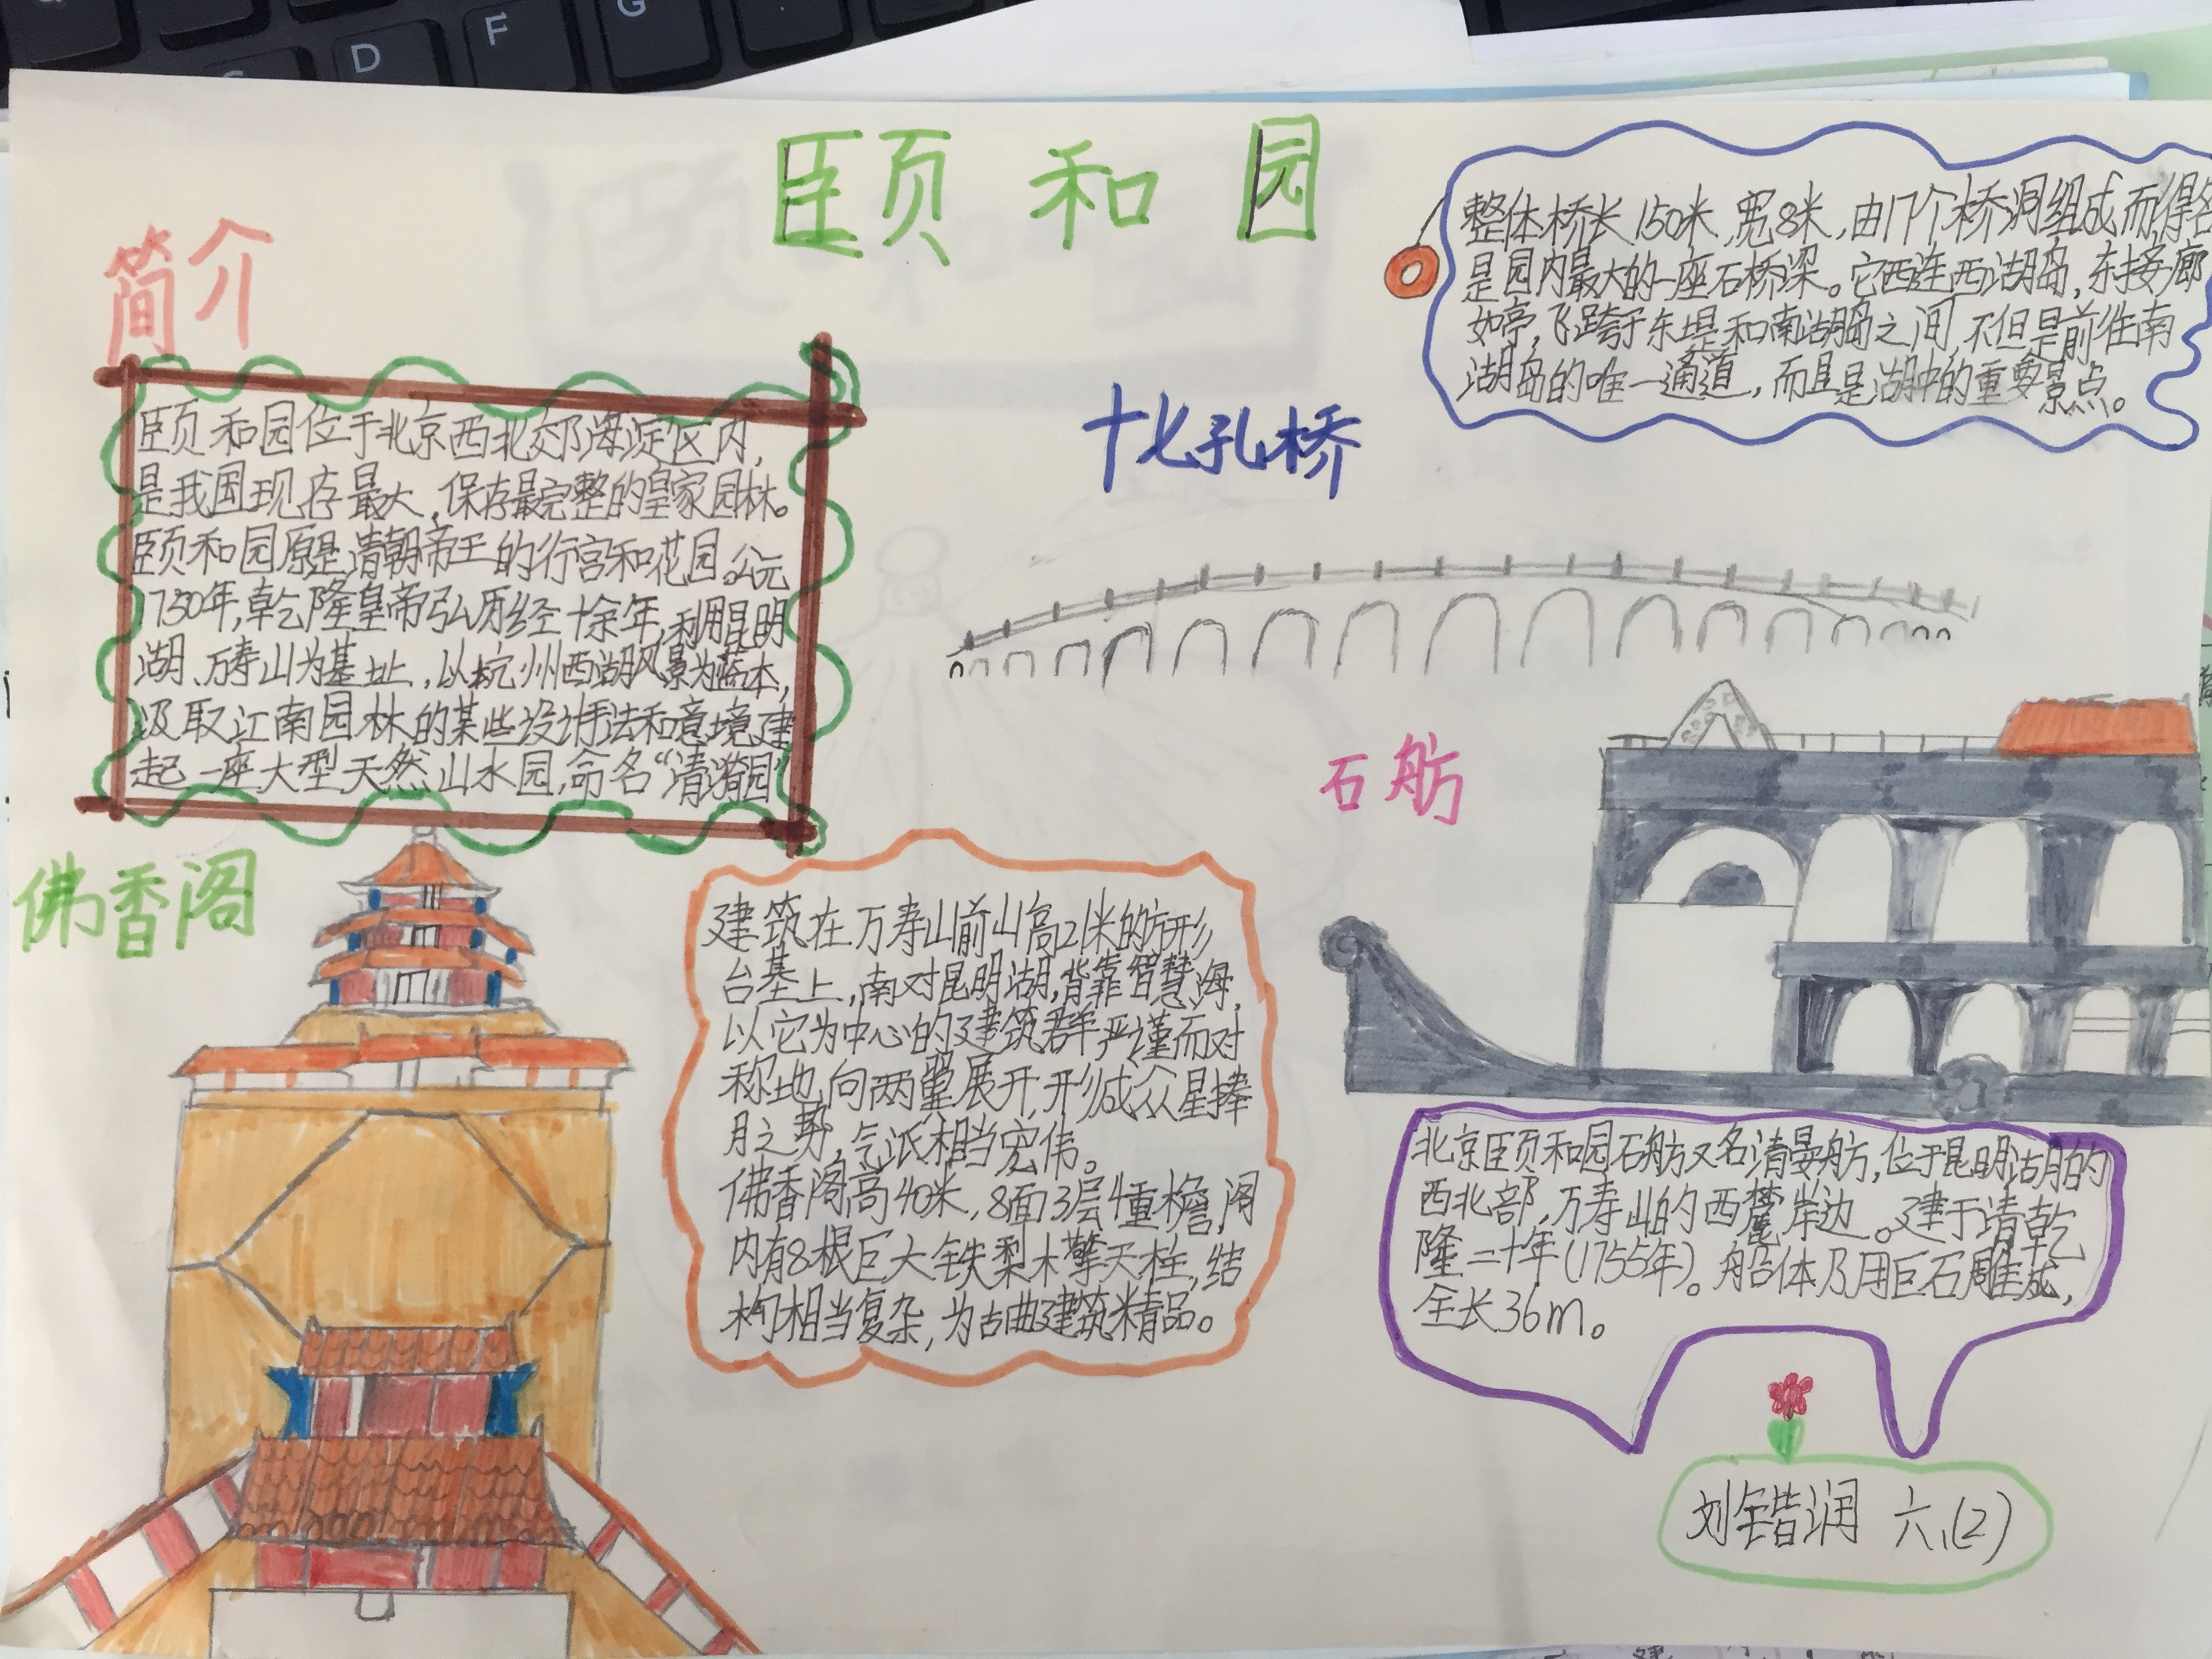 颐和园
简介
颐和园位于北京西北郊海淀区内,
是我国现存最大,保存最完整的皇家园林。
颐和园原是清朝帝王的行宫和花园。公元
1750年,乾隆皇帝弘历经十余年,利用昆明
湖、万寿山为基址,以杭州西湖风景为蓝本,
汲取江南园林的某些设计手法和意境建
起一座大型天然山水园,命名“清漪园”
十七孔桥
整体桥长150米,宽8米,由17个桥洞组成而得名
是园内最大的一座石桥梁。它西连西湖岛,东接廊
如亭,飞跨于东堤和南湖岛之间,不但是前往南
湖岛的唯一通道,而且是湖中的重要景点。
石舫
北京颐和园石舫又名清晏舫,位于昆明湖的
西北部,万寿山的西麓岸边。建于清乾
隆二十年(1755年)。船体乃用巨石雕成,
全长36m。
佛香阁
建筑在万寿山前山高21米的方形
台基上,南对昆明湖,背靠智慧海,
以它为中心的建筑群严谨而对
称地向两翼展开,形成众星捧
月之势,气派相当宏伟。
佛香阁高40米,8面3层4重檐,阁
内有8根巨大铁梨木擎天柱,结
构相当复杂,为古典建筑精品。
刘锴润 六、(2)
D
F
G